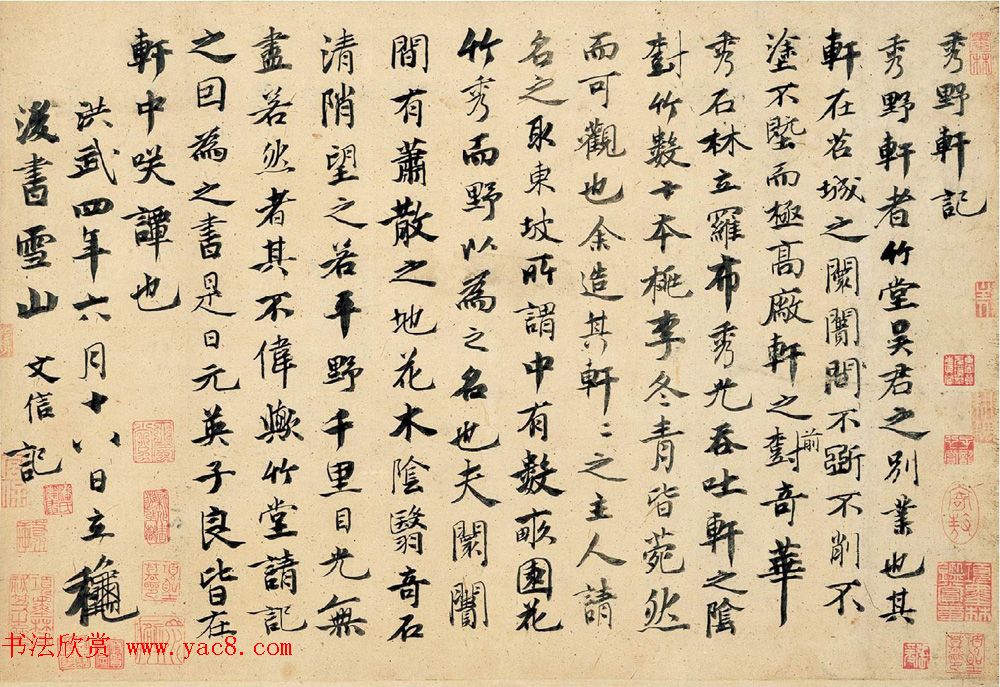 秀野軒記
秀野軒者竹堂吳君之別業也其
軒在苕城之闤闠間不斵不削不
塗不塈而極高廠軒之前對奇華
秀石林立羅布秀光吞吐軒之陰
對竹數十本桃李冬青皆菀然
而可觀也余造其軒〻之主人請
名之取東坡所謂中有數畝園花
竹秀而野以為之名也夫闤闠
間有蕭散之地花木陰翳奇石
清陗望之若平野千里目光無
盡若然者其不偉歟竹堂請記
之因為之書是日元英子良皆在
軒中咲譚也
洪武四年六月十八日立穐
後書雪山 文信記
书法欣赏 www.yac8.com